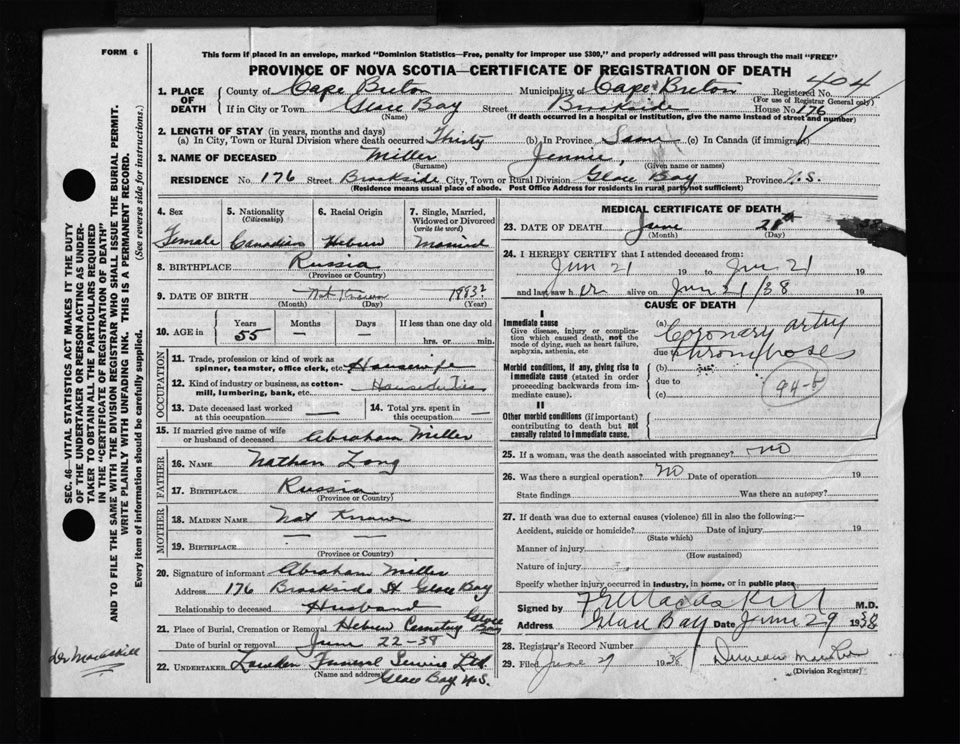 FORM 6
This form if placed in an envelope, marked "Dominion Statistics—Free, penalty for improper use $300," and properly addressed will pass through the mail "FREE"
PROVINCE OF NOVA SCOTIA—CERTIFICATE OF REGISTRATION OF DEATH
1. PLACE OF DEATH County of Cape Breton Municipality of Cape Breton Registered No. 404
(For use of Registrar General only)
If in City or Town Glace Bay Street Brookside House No. 176
(Name) (If death occurred in a hospital or institution, give the name instead of street and number)
2. LENGTH OF STAY (in years, months and days)
(a) In City, Town or Rural Division where death occurred Thirty (b) In Province Same (c) In Canada (if immigrant)
3. NAME OF DECEASED Miller Jennie,
(Surname) (Given name or names)
RESIDENCE No. 176 Street Brookside City, Town or Rural Division Glace Bay Province N.S.
(Residence means usual place of abode. Post Office Address for residents in rural parts not sufficient)
4. Sex Female
5. Nationality (Citizenship) Canadian
6. Racial Origin Hebrew
7. Single, Married, Widowed or Divorced (write the word) Married
8. BIRTHPLACE Russia
(Province or Country)
9. DATE OF BIRTH Not Known 1883?
(Month) (Day) (Year)
10. AGE in Years 55 Months — Days — If less than one day old
hrs. or min.
OCCUPATION
11. Trade, profession or kind of work as spinner, teamster, office clerk, etc. Housewife
12. Kind of industry or business, as cotton-mill, lumbering, bank, etc. House duties
13. Date deceased last worked at this occupation —
14. Total yrs. spent in this occupation —
15. If married give name of wife or husband of deceased Abraham Miller
FATHER
16. NAME Nathan Long
17. BIRTHPLACE Russia
(Province or Country)
MOTHER
18. MAIDEN NAME Not Known
19. BIRTHPLACE — —
(Province or Country)
20. Signature of informant Abraham Miller
Address 176 Brookside St Glace Bay
Relationship to deceased Husband
21. Place of Burial, Cremation or Removal Hebrew Cemetery Glace Bay
Date of burial or removal June 22-38
22. UNDERTAKER Funeral Service Ltd
(Name and address) Glace Bay N.S.
MEDICAL CERTIFICATE OF DEATH
23. DATE OF DEATH June 21th 38
(Month) (Day)
24. I HEREBY CERTIFY that I attended deceased from:
Jun 21 19 to Jun 21 19
and last saw her alive on Jun 21/38 19
CAUSE OF DEATH
I
Immediate cause
Give disease, injury or complication which caused death, not the mode of dying, such as heart failure, asphyxia, asthenia, etc
(a) Coronary artery
due to thrombosis
Morbid conditions, if any, giving rise to immediate cause (stated in order proceeding backwards from immediate cause).
(b)
due to
(c)
94-b
II
Other morbid conditions (if important) contributing to death but not causally related to immediate cause.
25. If a woman, was the death associated with pregnancy? no
26. Was there a surgical operation? no Date of operation 19
State findings Was there an autopsy?
27. If death was due to external causes (violence) fill in also the following:—
Accident, suicide or homicide? Date of injury 19
(State which)
Manner of injury
(How sustained)
Nature of injury
Specify whether injury occurred in industry, in home, or in public place
Signed by M.D.
Address Glace Bay Date June 29 1938
28. Registrar's Record Number
29. Filed June 29 1938 Duncan
(Division Registrar)
SEC. 46—VITAL STATISTICS ACT MAKES IT THE DUTY
OF THE UNDERTAKER OR PERSON ACTING AS UNDER-
TAKER TO OBTAIN ALL THE PARTICULARS REQUIRED
IN THE "CERTIFICATE OF REGISTRATION OF DEATH"
AND TO FILE THE SAME WITH THE DIVISION REGISTRAR WHO SHALL ISSUE THE BURIAL PERMIT.
WRITE PLAINLY WITH UNFADING INK. THIS IS A PERMANENT RECORD.
Every item of information should be carefully supplied. (See reverse side for instructions.)
Dr Macaskill